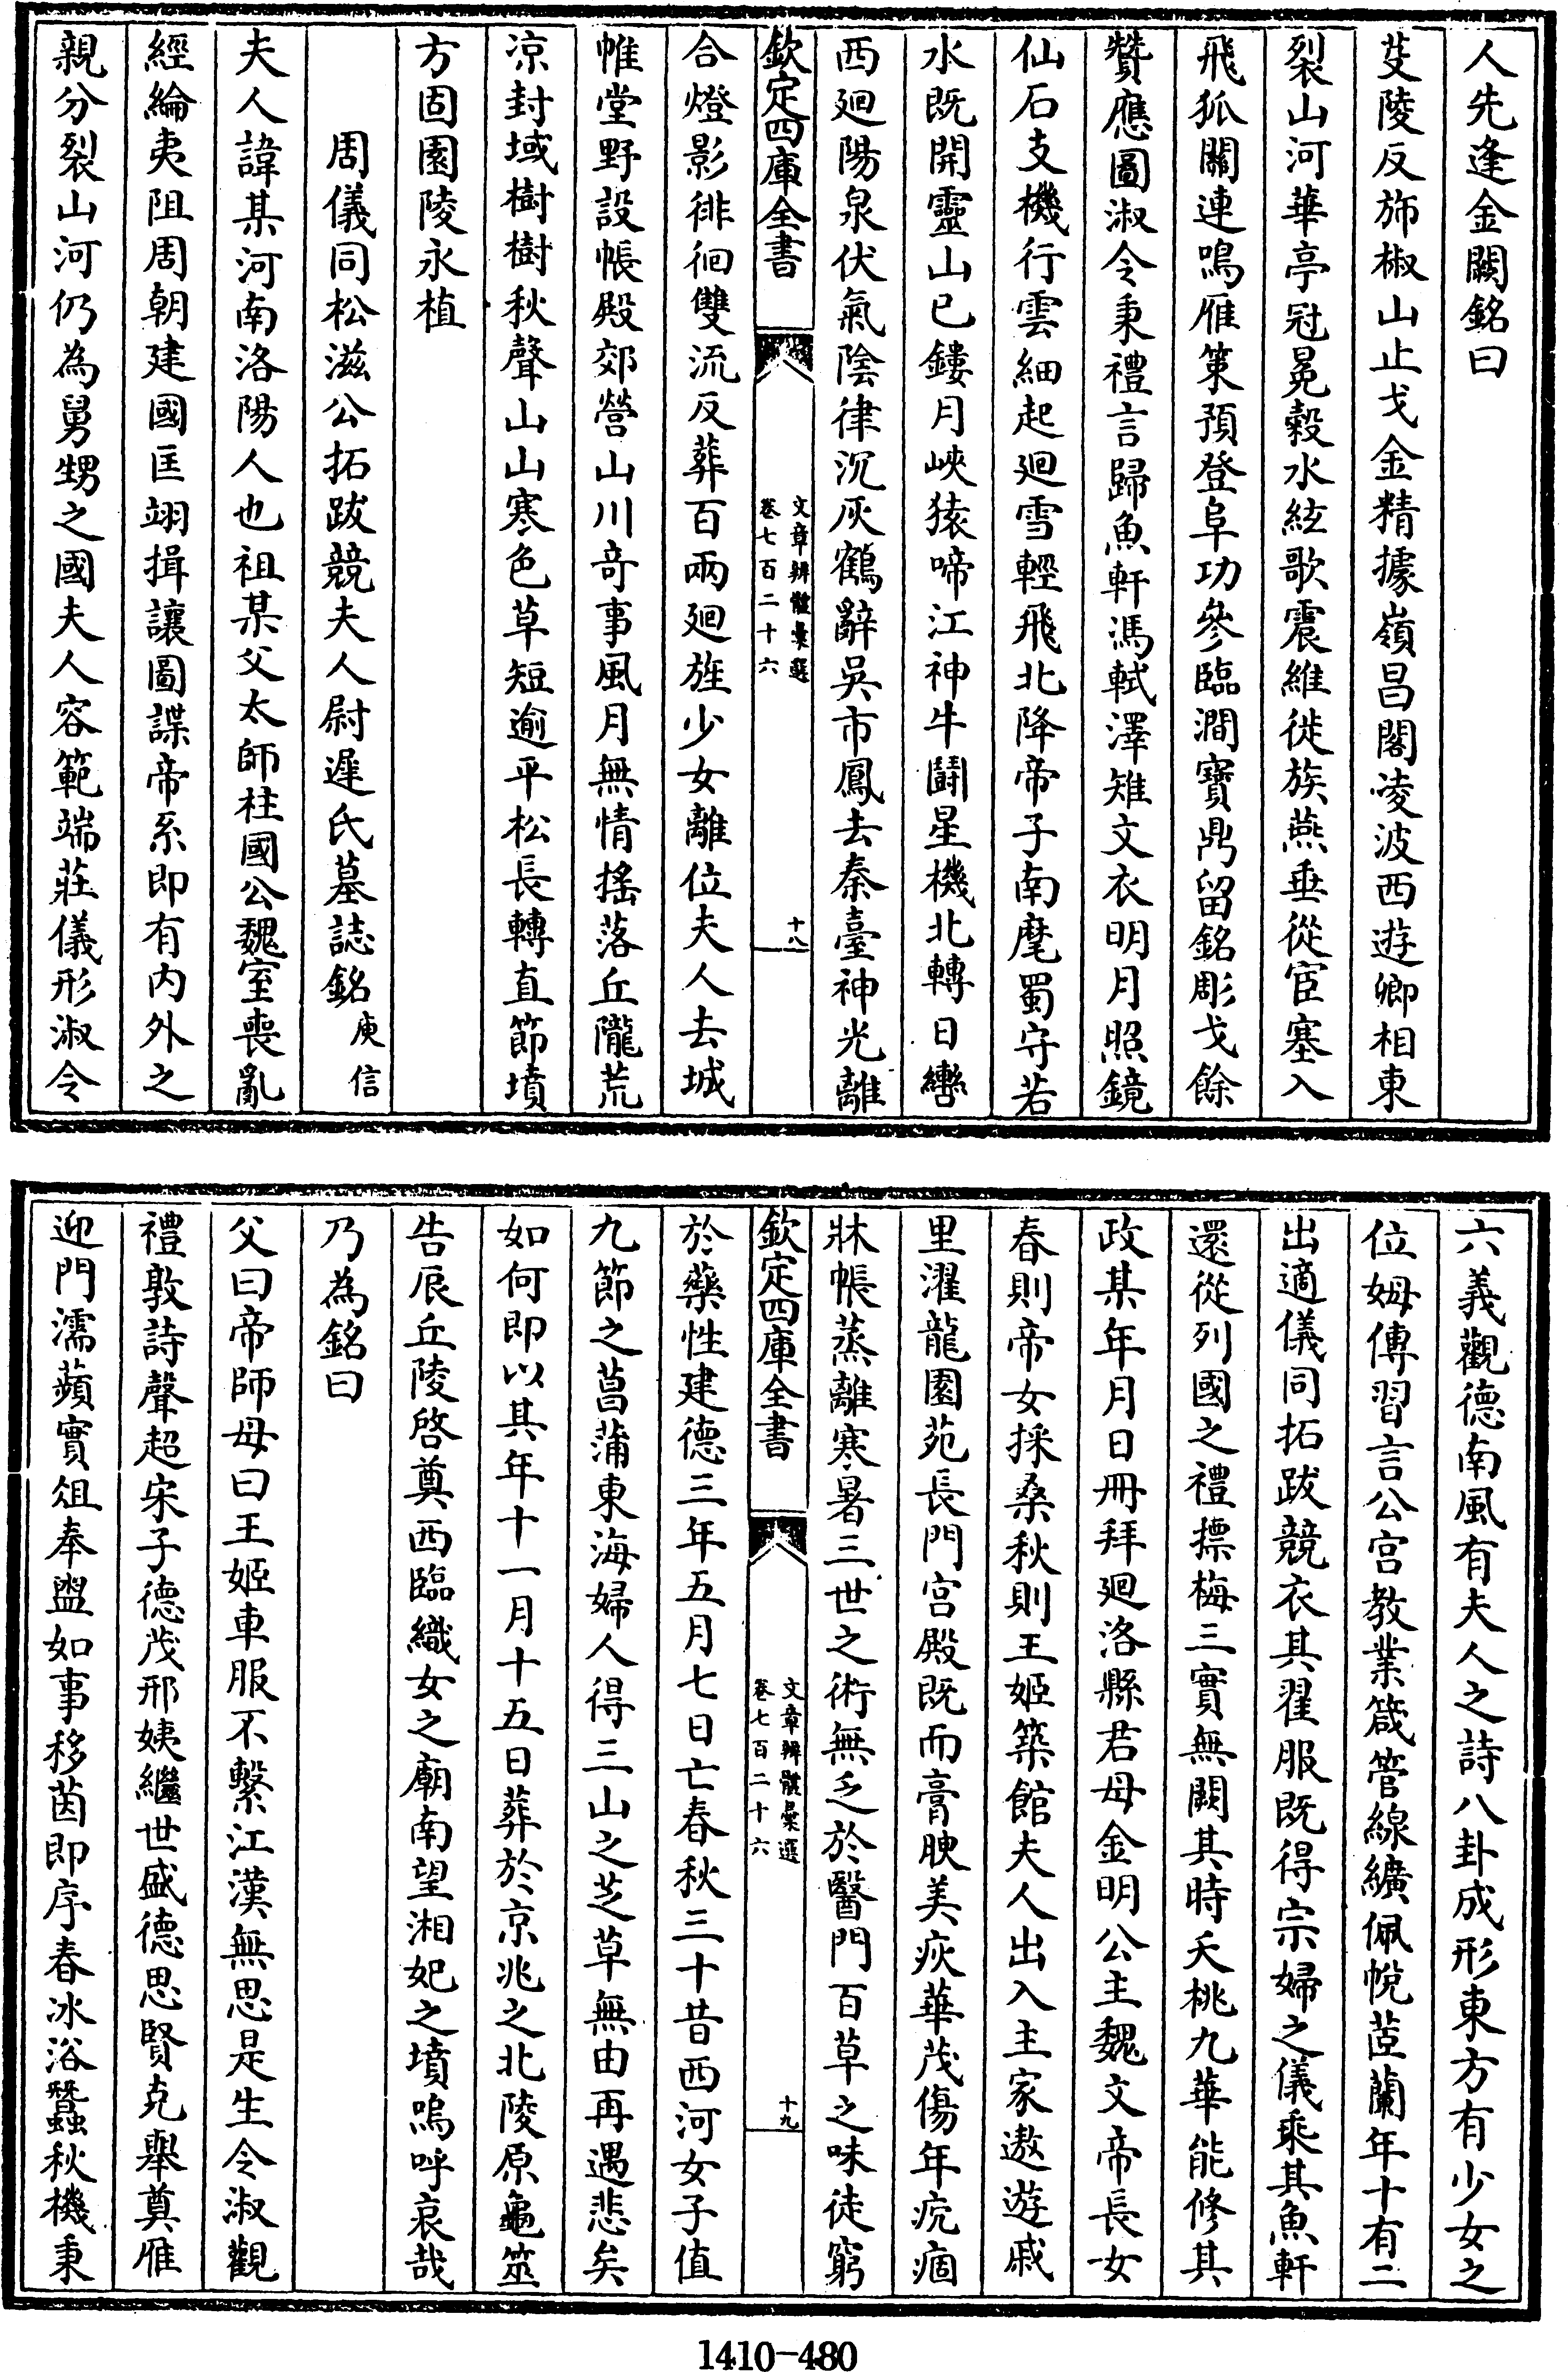 人先逢金闕銘曰
芟陵反斾椒山止戈金精據嶺昌閣凌波西遊卿相東
裂山河華亭冠冕穀水絃歌震維徙族燕垂從宦塞入
飛狐關連鳴雁策預登阜功參臨澗寶鼎留銘彫戈餘
贊應圖淑令秉禮言歸魚軒馮軾澤雉文衣明月照鏡
仙石支機行雲細起廻雪輕飛北降帝子南麾蜀守若
水既開靈山已鏤月峽猿啼江神牛鬪星機北轉日轡
西廻陽泉伏氣陰律沉灰鶴辭吳市鳳去秦臺神光離
欽定四庫全書
文章辨體彙選
卷七百二十六
十八
合燈影徘徊雙流反葬百兩廻旌少女離位夫人去城
帷堂野設帳殿郊營山川奇事風月無情搖落丘隴荒
凉封域樹樹秋聲山山寒色草短逾平松長轉直節墳
方固園陵永植
周儀同松滋公拓跋競夫人尉遲氏墓誌銘 庾信
夫人諱某河南洛陽人也祖某父太師柱國公魏室喪亂
經綸夷阻周朝建國匡翊揖讓圖諜帝系即有内外之
親分裂山河仍為舅甥之國夫人容範端莊儀形淑令
六義觀德南風有夫人之詩八卦成形東方有少女之
位姆傅習言公宫教業箴管線纊佩帨茝蘭年十有二
出適儀同拓跋競衣其翟服既得宗婦之儀乘其魚軒
還從列國之禮摽梅三實無闕其時夭桃九華能修其
政某年月日冊拜廻洛縣君母金明公主魏文帝長女
春則帝女採桑秋則王姬築館夫人出入主家遨遊戚
里濯龍園苑長門宫殿既而膏腴美疢華茂傷年疣痼
牀帳蒸離寒暑三世之術無乏於醫門百草之味徒窮
欽定四庫全書
文章辨體彙選
卷七百二十六
十九
於藥性建德三年五月七日亡春秋三十昔西河女子值
九節之菖蒲東海婦人得三山之芝草無由再遇悲矣
如何即以其年十一月十五日葬於京兆之北陵原龜筮
告辰丘陵啓奠西臨織女之廟南望湘妃之墳嗚呼哀哉
乃為銘曰
父曰帝師母曰王姬車服不繫江漢無思是生令淑觀
禮敦詩聲超宋子德茂邢姨繼世盛德思賢克舉奠雁
迎門濡蘋實俎奉盥如事移茵即序春冰浴蠶秋機秉
1410-480